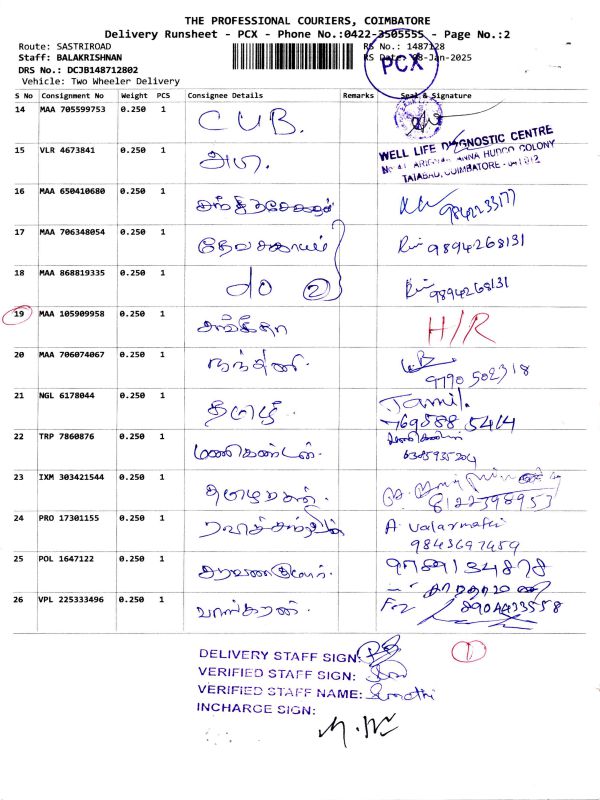 THE PROFESSIONAL COURIERS, COIMBATORE
Delivery Runsheet - PCX - Phone No.:0422-3505555 - Page No.:2
Route: SASTRIROAD RS No.: 1487128
Staff: BALAKRISHNAN RS Date: -Jan-2025
PCX
DRS No.: DCJB148712802
Vehicle: Two Wheeler Delivery
S No Consignment No Weight PCS Consignee Details Remarks Seal & Signature
14 MAA 705599753 0.250 1 CUB.
15 VLR 4673841 0.250 1
WELL LIFE DIAGNOSTIC CENTRE
ANNA HUDCO COLONY
TATABAD, COIMBATORE - 641 012
16 MAA 650410680 0.250 1 9842233177
17 MAA 706348054 0.250 1 9894268131
18 MAA 868819335 0.250 1 9894268131
19 MAA 105909958 0.250 1 H/R
20 MAA 706074067 0.250 1 நந்தினி. 9790 502318
21 NGL 6178044 0.250 1 Tamil.
7695885414
22 TRP 7860876 0.250 1 மணிகண்டன்.
6385935204
23 IXM 303421544 0.250 1 8122398953
24 PRO 17301155 0.250 1 A. Valarmathi
9843697459
25 POL 1647122 0.250 1 சரவணகுமார். 9789134878
26 VPL 225333496 0.250 1 For 8904423558
①
DELIVERY STAFF SIGN:
VERIFIED STAFF SIGN:
VERIFIED STAFF NAME: Sumathi
INCHARGE SIGN: